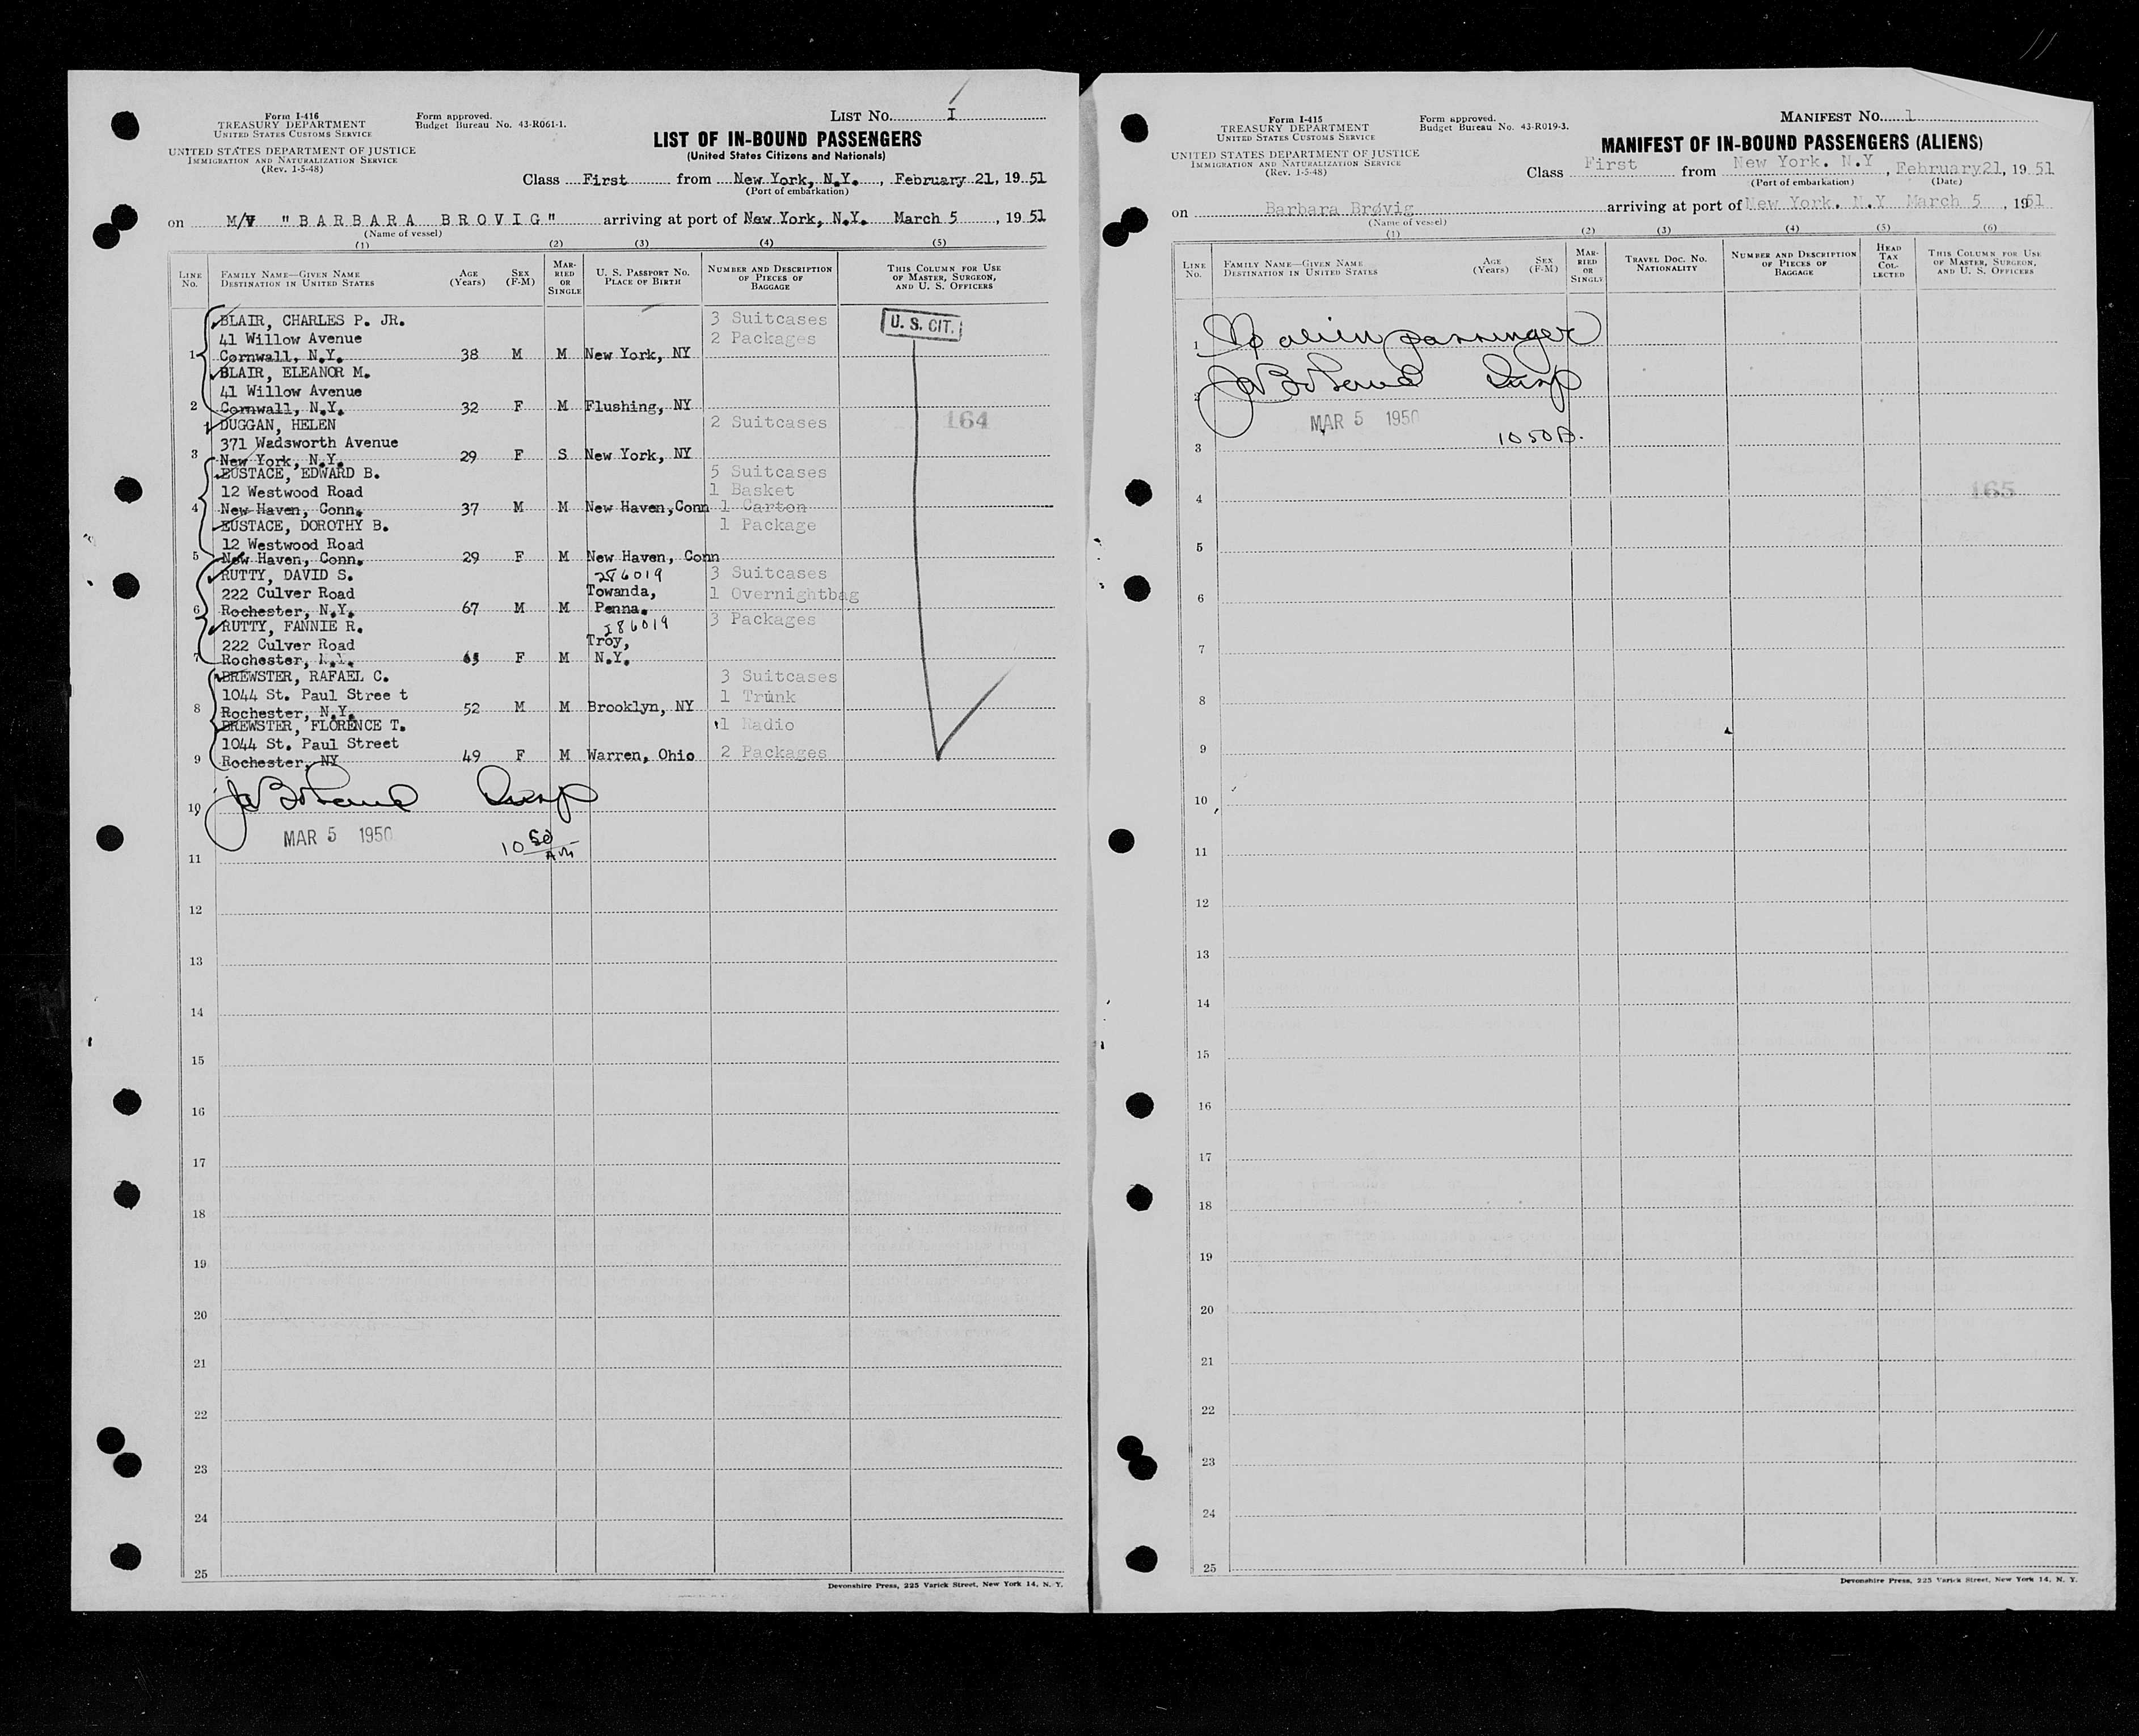 Form I-416
TREASURY DEPARTMENT
UNITED STATES CUSTOMS SERVICE
UNITED STATES DEPARTMENT OF JUSTICE
IMMIGRATION AND NATURALIZATION SERVICE
(Rev. 1-5-48)
Form approved.
Budget Bureau No. 43-R061-1.
LIST No. I
LIST OF IN-BOUND PASSENGERS
(United States Citizens and Nationals)
Class First from New York, N.Y., February 21, 1951
(Port of embarkation)
on M/V "BARBARA BROVIG" arriving at port of New York, N.Y. March 5, 1951
(Name of vessel)
(1) (2) (3) (4) (5)
LINE No. FAMILY NAME—GIVEN NAME DESTINATION IN UNITED STATES AGE (Years) SEX (F-M) MARRIED OR SINGLE U. S. PASSPORT NO. PLACE OF BIRTH NUMBER AND DESCRIPTION OF PIECES OF BAGGAGE THIS COLUMN FOR USE OF MASTER, SURGEON, AND U. S. OFFICERS
BLAIR, CHARLES P. JR. 3 Suitcases U. S. CIT.
41 Willow Avenue 2 Packages
1 Cornwall, N.Y. 38 M M New York, NY
BLAIR, ELEANOR M.
41 Willow Avenue
2 Cornwall, N.Y. 32 F M Flushing, NY
DUGGAN, HELEN 2 Suitcases 164
371 Wadsworth Avenue
3 New York, N.Y. 29 F S New York, NY
EUSTACE, EDWARD B. 5 Suitcases
12 Westwood Road 1 Basket
4 New Haven, Conn. 37 M M New Haven, Conn 1 Carton
EUSTACE, DOROTHY B. 1 Package
12 Westwood Road
5 New Haven, Conn. 29 F M New Haven, Conn
RUTTY, DAVID S. 286019 3 Suitcases
222 Culver Road Towanda, 1 Overnightbag
6 Rochester, N.Y. 67 M M Penna.
RUTTY, FANNIE R. 286019 3 Packages
222 Culver Road Troy,
7 Rochester, N.Y. F M N.Y.
BREWSTER, RAFAEL C. 3 Suitcases
1044 St. Paul Stree t 1 Trunk
8 Rochester, N.Y. 52 M M Brooklyn, NY
BREWSTER, FLORENCE T. 1 Radio
1044 St. Paul Street
9 Rochester, NY 49 F M Warren, Ohio 2 Packages
10
MAR 5 1950 10 50 AM
11
12
13
14
15
16
17
18
19
20
21
22
23
24
25
Devonshire Press, 225 Varick Street, New York 14, N. Y.
Form I-415
TREASURY DEPARTMENT
UNITED STATES CUSTOMS SERVICE
UNITED STATES DEPARTMENT OF JUSTICE
IMMIGRATION AND NATURALIZATION SERVICE
(Rev. 1-5-48)
Form approved.
Budget Bureau No. 43-R019-3.
MANIFEST No. 1
MANIFEST OF IN-BOUND PASSENGERS (ALIENS)
Class First from New York. N.Y, February21, 1951
(Port of embarkation) (Date)
on Barbara Brøvig arriving at port of New York. N.Y March 5, 1951
(Name of vessel)
(1) (2) (3) (4) (5) (6)
LINE No. FAMILY NAME—GIVEN NAME DESTINATION IN UNITED STATES AGE (Years) SEX (F-M) MARRIED OR SINGLE TRAVEL DOC. NO. NATIONALITY NUMBER AND DESCRIPTION OF PIECES OF BAGGAGE HEAD TAX COLLECTED THIS COLUMN FOR USE OF MASTER, SURGEON, AND U. S. OFFICERS
1 No alien passenger
2
MAR 5 1950
3 10 50 A.
4 165
5
6
7
8
9
10
11
12
13
14
15
16
17
18
19
20
21
22
23
24
25
Devonshire Press, 225 Varick Street, New York 14, N. Y.